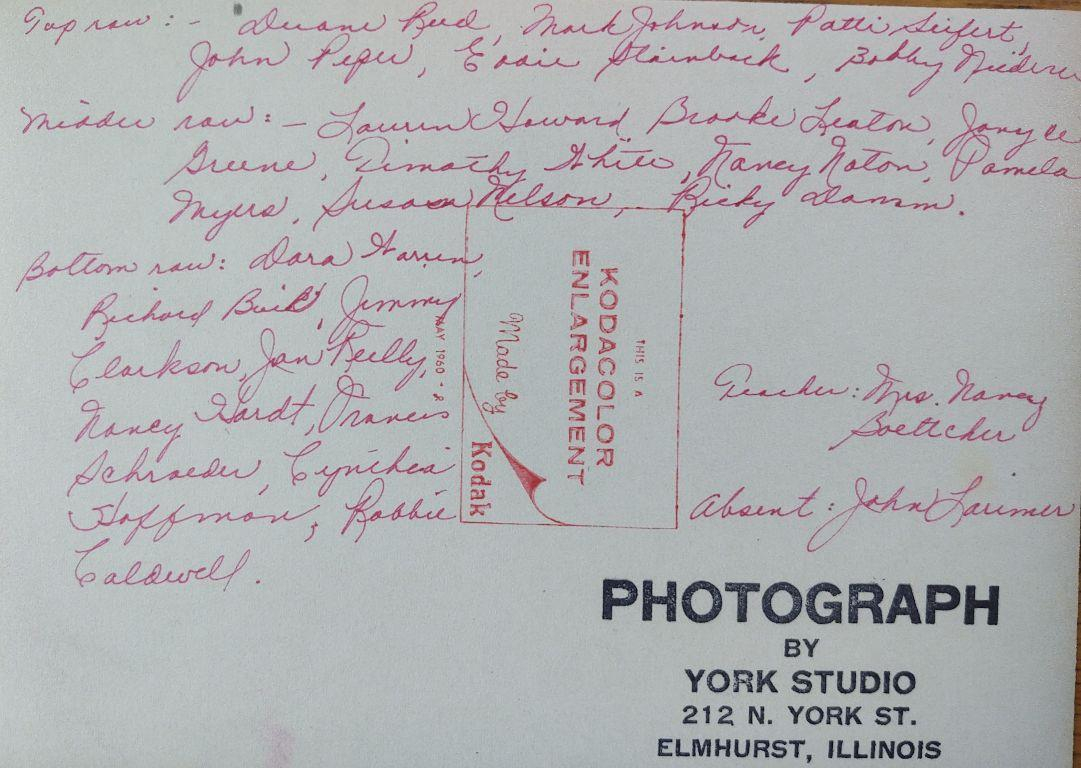 Top row: - Duane Reed, Mark Johnson, Patti Seifert,
John Piper, Eddie Stainback, Bobby
Middle row: - Lauren Howard, Brooke Leaton, Joryce
Greene, Timothy White, Nancy Noton, Pamela
Myers, Susan Nelson, Ricky Damm.
Bottom row: Dara Warren,
Richard Buik, Jimmy
Clarkson, Jan Reilly,
Nancy Hardt, Francis
Schroeder, Cynthia
Hoffman, Robbie
Caldwell.
MAY 1960 - 8
Made by
Kodak
KODACOLOR
ENLARGEMENT
THIS IS A
Teacher: Mrs. Nancy
Boettcher
Absent: John Larimer
PHOTOGRAPH
BY
YORK STUDIO
212 N. YORK ST.
ELMHURST, ILLINOIS